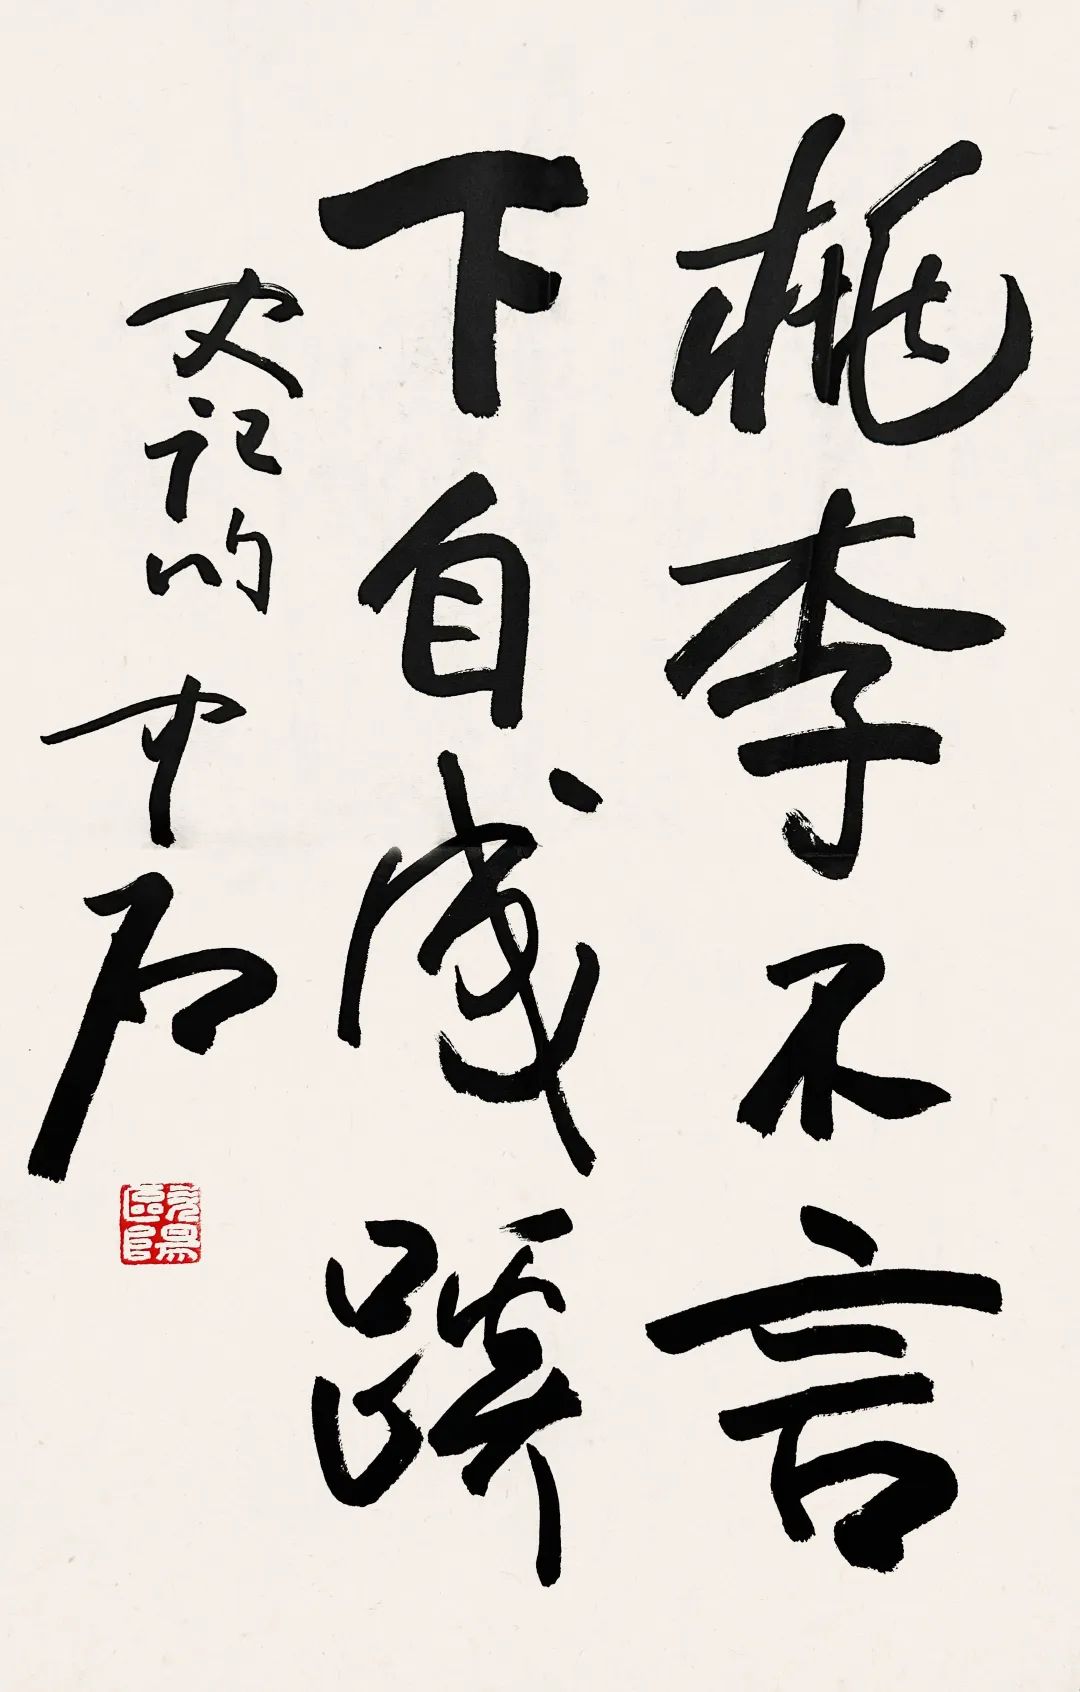 桃李不言
下自成蹊
史记 中石